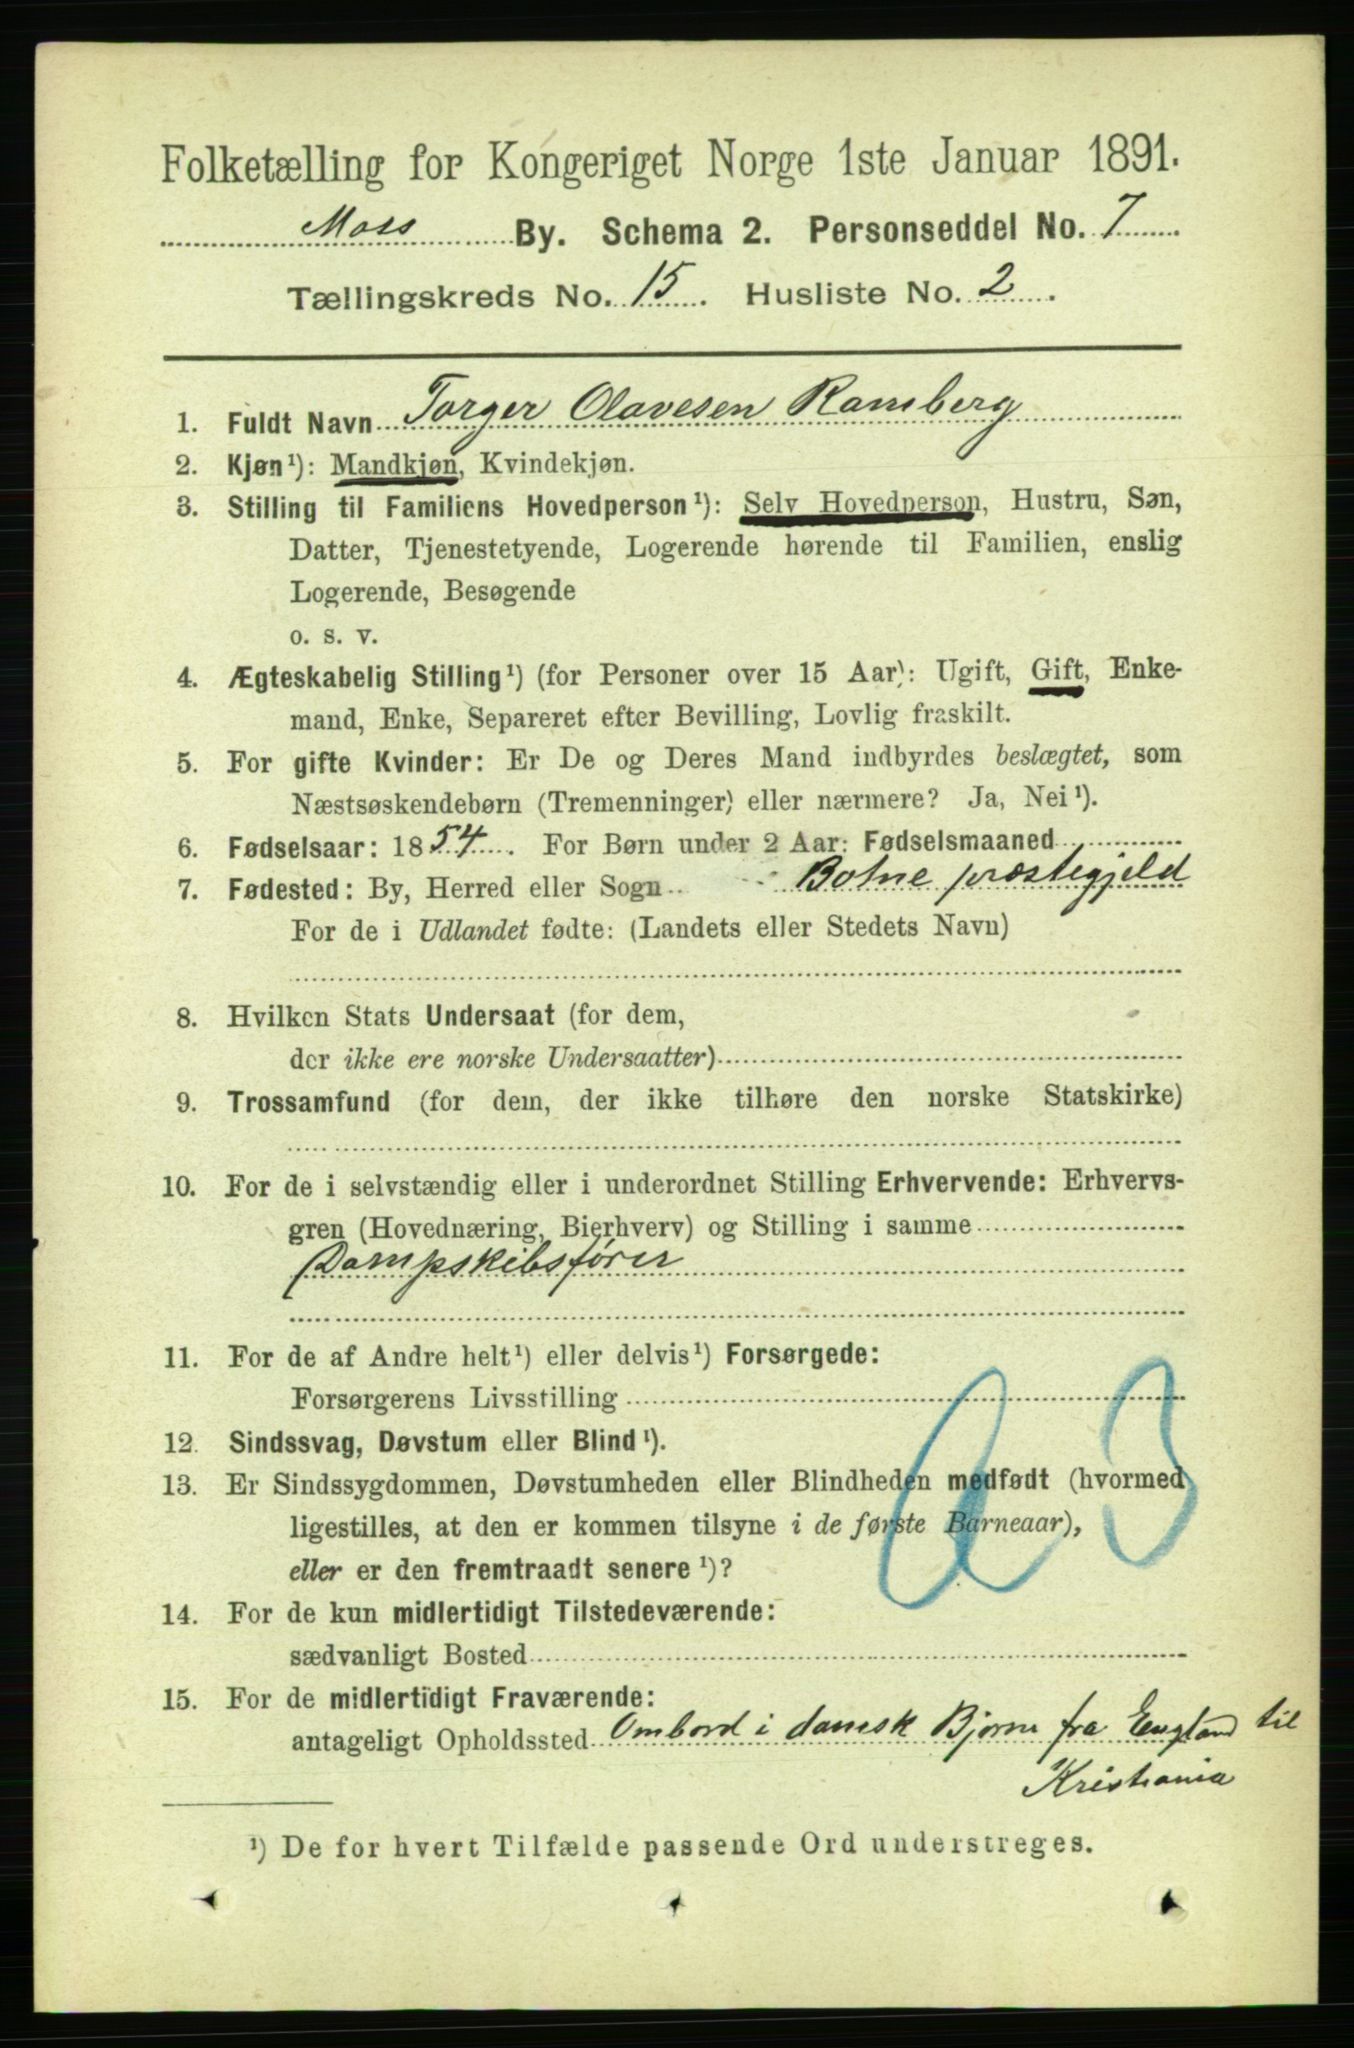 Folketælling for Kongeriget Norge 1ste Januar 1891.
Moss By. Schema 2. Personseddel No. 7
Tællingskreds No. 15. Husliste No. 2.
1. Fuldt Navn Torger Olavesen Ramberg
2. Kjøn¹): Mandkjøn, Kvindekjøn.
3. Stilling til Familiens Hovedperson¹): Selv Hovedperson, Hustru, Søn,
Datter, Tjenestetyende, Logerende hørende til Familien, enslig
Logerende, Besøgende
o. s. v.
4. Ægteskabelig Stilling¹) (for Personer over 15 Aar): Ugift, Gift, Enke-
mand, Enke, Separeret efter Bevilling, Lovlig fraskilt.
5. For gifte Kvinder: Er De og Deres Mand indbyrdes beslægtet, som
Næstsøskendebørn (Tremenninger) eller nærmere? Ja, Nei¹).
6. Fødselsaar: 1854. For Børn under 2 Aar: Fødselsmaaned
7. Fødested: By, Herred eller Sogn Botne præstegjeld
For de i Udlandet fødte: (Landets eller Stedets Navn)
8. Hvilken Stats Undersaat (for dem,
der ikke ere norske Undersaatter)
9. Trossamfund (for dem, der ikke tilhøre den norske Statskirke)
10. For de i selvstændig eller i underordnet Stilling Erhvervende: Erhvervs-
gren (Hovednæring, Bierhverv) og Stilling i samme
Dampskibsfører
11. For de af Andre helt¹) eller delvis¹) Forsørgede:
Forsørgerens Livsstilling
12. Sindssvag, Døvstum eller Blind¹).
13. Er Sindssygdommen, Døvstumheden eller Blindheden medfødt (hvormed
ligestilles, at den er kommen tilsyne i de første Barneaar),
eller er den fremtraadt senere¹)?
14. For de kun midlertidigt Tilstedeværende:
sædvanligt Bosted
15. For de midlertidigt Fraværende:
antageligt Opholdssted Ombord i damsk Bjørn fra England til
Kristiania
¹) De for hvert Tilfælde passende Ord understreges.